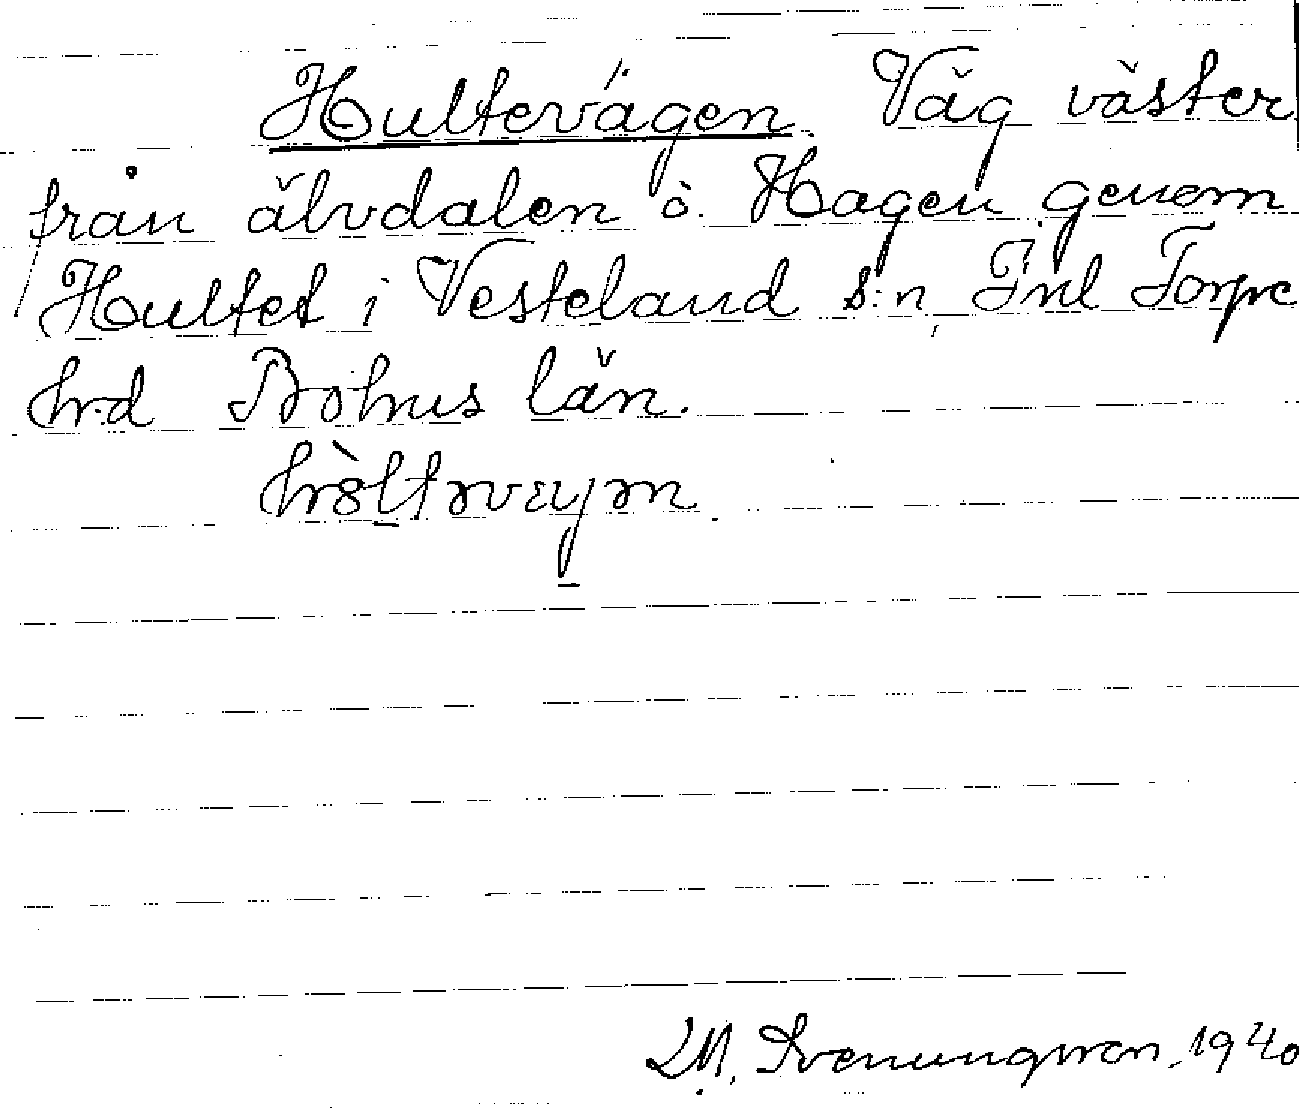 Hultevägen. Väg väster
från älvdalen o. Hagen genom
Hultet i Vesteland s:n, Inl Torpe
hrd Bohus län.
M. Svenungsson. 1940